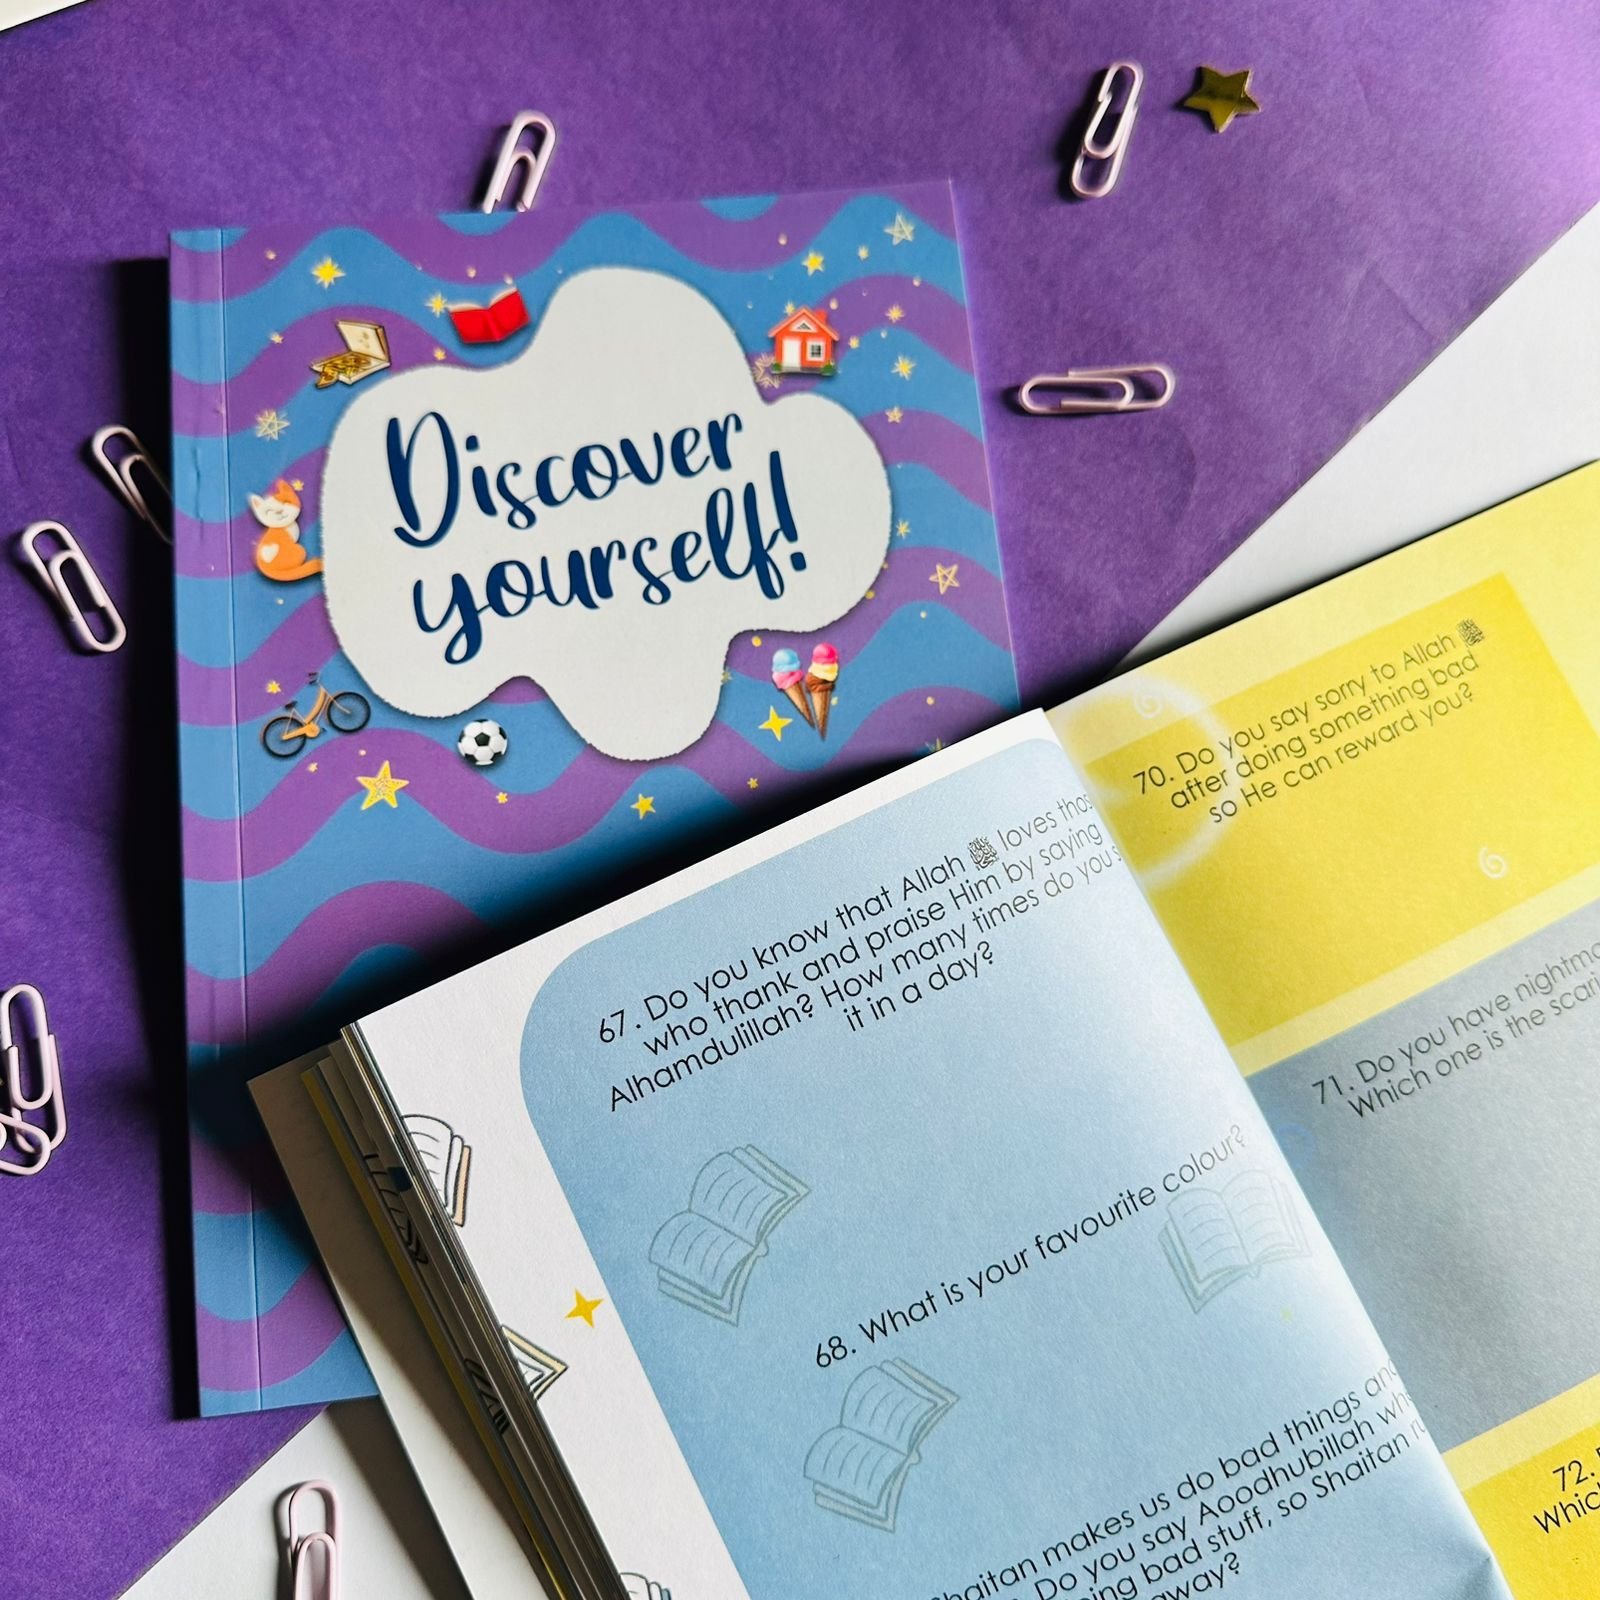 Discover
yourself!
67. Do you know that Allah ﷻ loves
who thank and praise Him by saying
Alhamdulillah? How many times do you
it in a day?
68. What is your favourite colour?
makes us do bad things and
Do you say Aoodhubillah
bad stuff, so Shaitan
away?
70. Do you say sorry to Allah ﷻ
after doing something bad
so He can reward you?
71. Do you have
Which one is the
72.